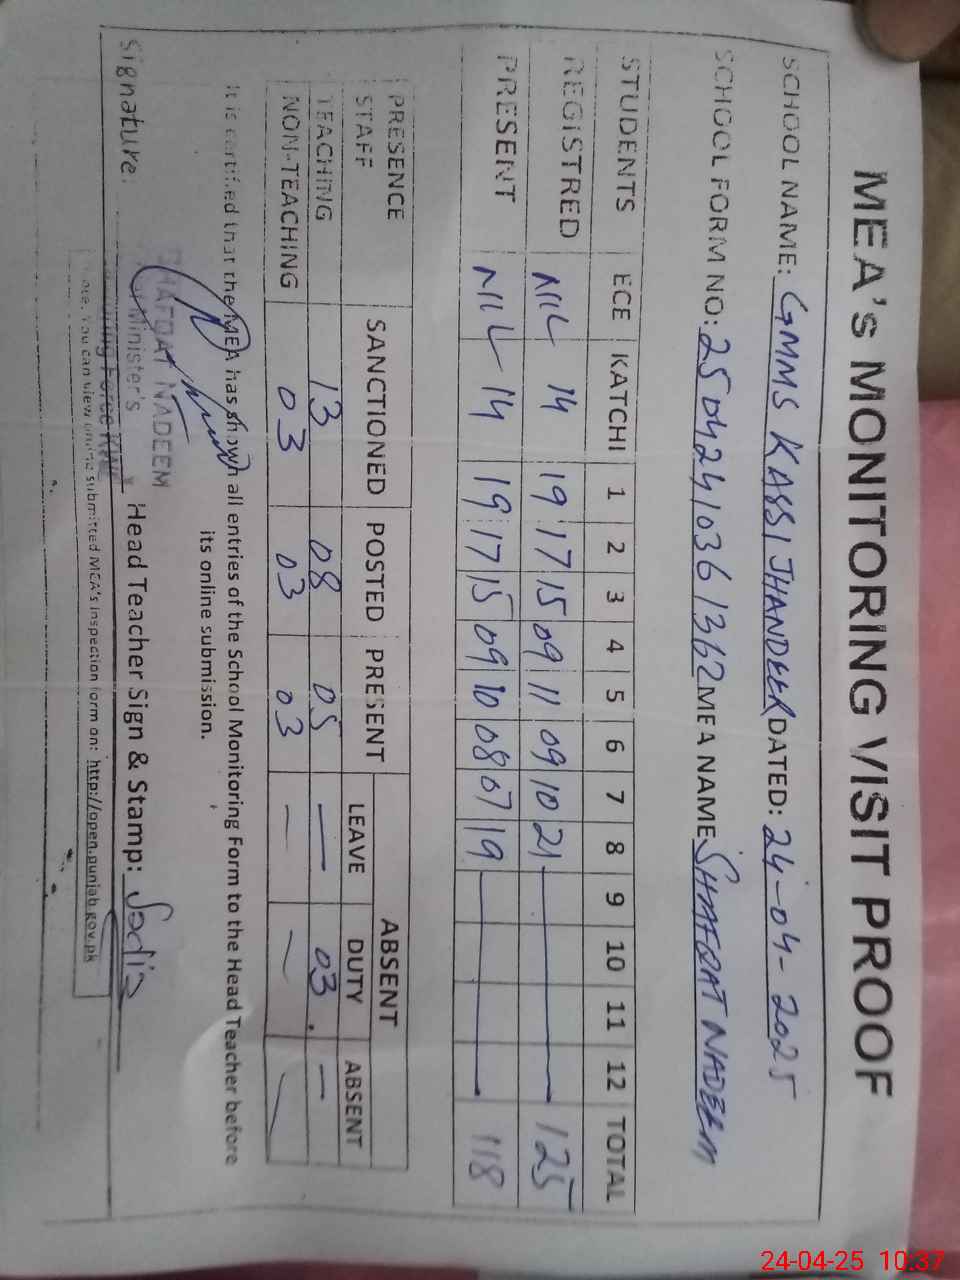 MEA's MONITORING VISIT PROOF
SCHOOL NAME: GMMS KASSI JHANDEER DATED: 24-04-2025
SCHOOL FORM NO: 25042410361362 MEA NAME SHAFQAT NADEEM
STUDENTS ECE KATCHI 1 2 3 4 5 6 7 8 9 10 11 12 TOTAL
REGISTRED NIL 14 19 17 15 09 11 09 10 21 — 125
PRESENT NIL 14 19 17 15 09 10 08 07 19 — 118
PRESENCE STAFF SANCTIONED POSTED PRESENT ABSENT
LEAVE DUTY ABSENT
TEACHING 13 08 05 — 03. —
NON-TEACHING 03 03 03 — — —
It is certified that the MEA has shown all entries of the School Monitoring Form to the Head Teacher before
its online submission.
SHAFQAT NADEEM
Minister's
Monitoring Force KWL
Signature: Head Teacher Sign & Stamp:
Note. You can view online submitted MEA's Inspection form on: http://open.punjab.gov.pk
24-04-25 10:37